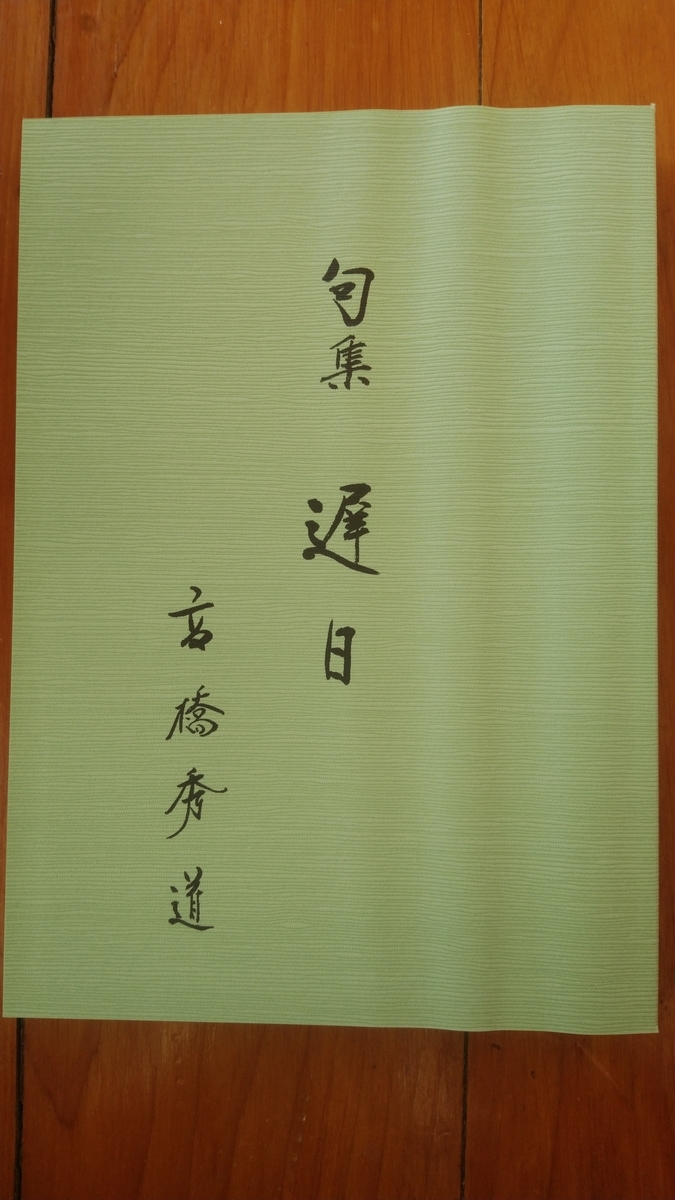 句集 遅日
高橋秀道